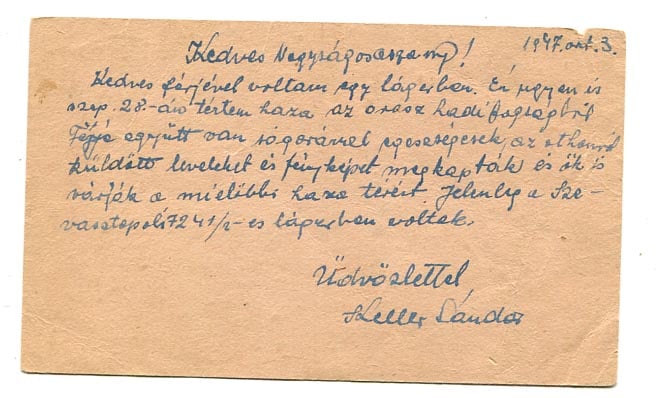 1947. okt. 3.
Kedves Nagyságosasszony!
Kedves férjével voltam egy lágerben. Én ugyan is
szep. 28.-án tértem haza az orosz hadifogságból
Férje együtt van sógorával egeszségesek, az othonról
küldött leveleket és fényképet megkapták és ők is
várják a mielőbbi haza térést. Jelenleg a Sze-
vasztopoli 7241/2-es lágerben voltak.
Üdvözlettel
Keller Sándor